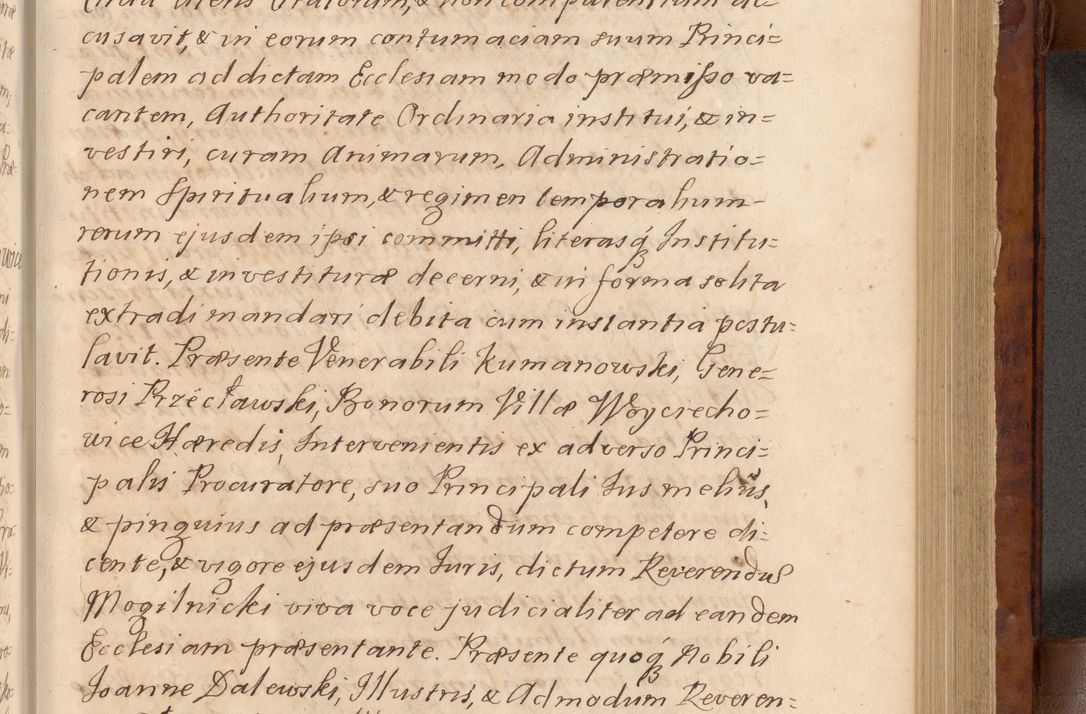 cusavit, & in eorum contumaciam suum Princi=
palem ad dictam Ecclesiam modo præmisso va=
cantem, Authoritate Ordinaria institui, & in=
vestiri, curam Animarum, Administratio=
nem Spiritualium, & regimen temporalium-
rerum ejusdem ipsi committi, literasq́ Institu=
tionis, & investituræ decerni, & in forma solita
extradi mandari debita cum instantia postu=
lavit. Præsente Venerabili Kumanowski, Gene=
rosi Przecławski, Bonorum Villæ Woyciecho=
wice Hæredis, Intervenientis ex adverso Princi=
palis Procuratore, suo Principali Jus melius,
& pinguius ad præsentandum competere di=
cente, & vigore ejusdem Juris, dictum Reverendus
Mogilnicki viva voce judicialiter ad eandem
Ecclesiam præsentante. Præsente quoq́ Nobili
Joanne Dalewski, Illustris, & Admodum Reveren=